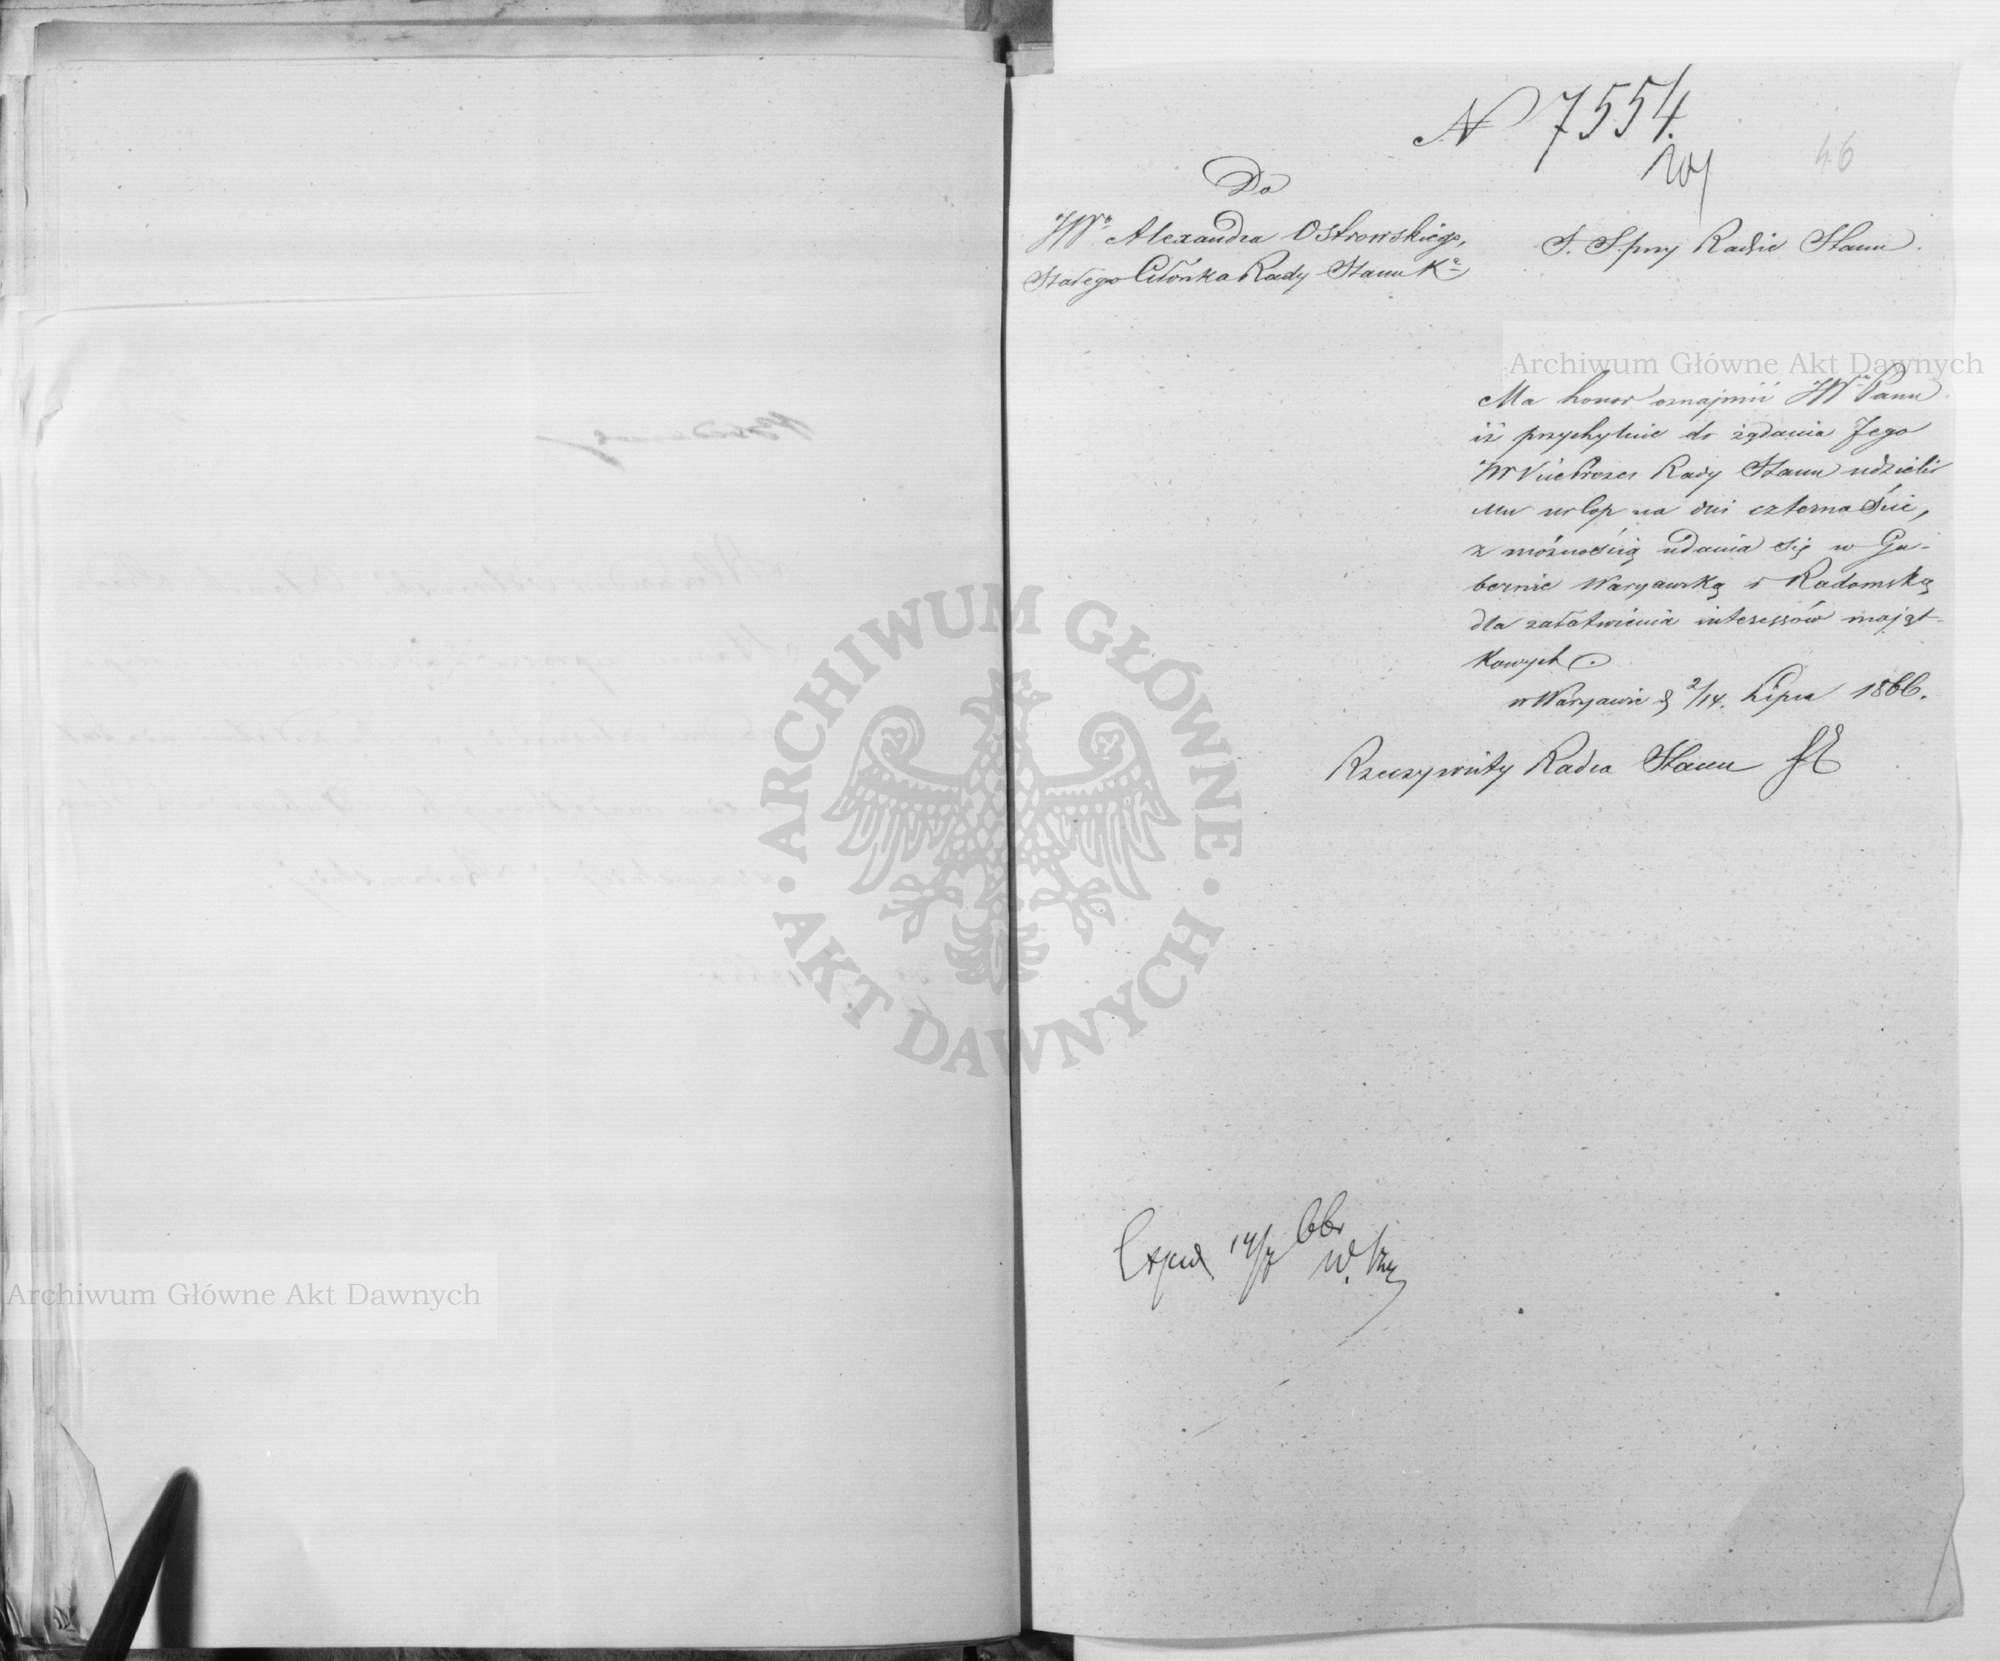 N 7554.
46
Do
JWo Alexandra Ostrowskiego,
Stałego Członka Rady Stanu Ka
S. S. przy Radzie Stanu.
Archiwum Główne Akt Dawnych
Ma honor oznajmić JWmu Panu
iż przychylnie do żądania Jego
JW VicePrezes Rady Stanu udzielił
Mu urlop na dni czternaście,
z możnością udania się w Gu-
bernie Warszawską i Radomską
dla załatwienia interessów mająt-
kowych.
w Warszawie d 2/14. Lipca 1866.
Rzeczywisty Radca Stanu
ARCHIWUM GŁÓWNE AKT DAWNYCH
Exped 14/7 66r
Archiwum Główne Akt Dawnych